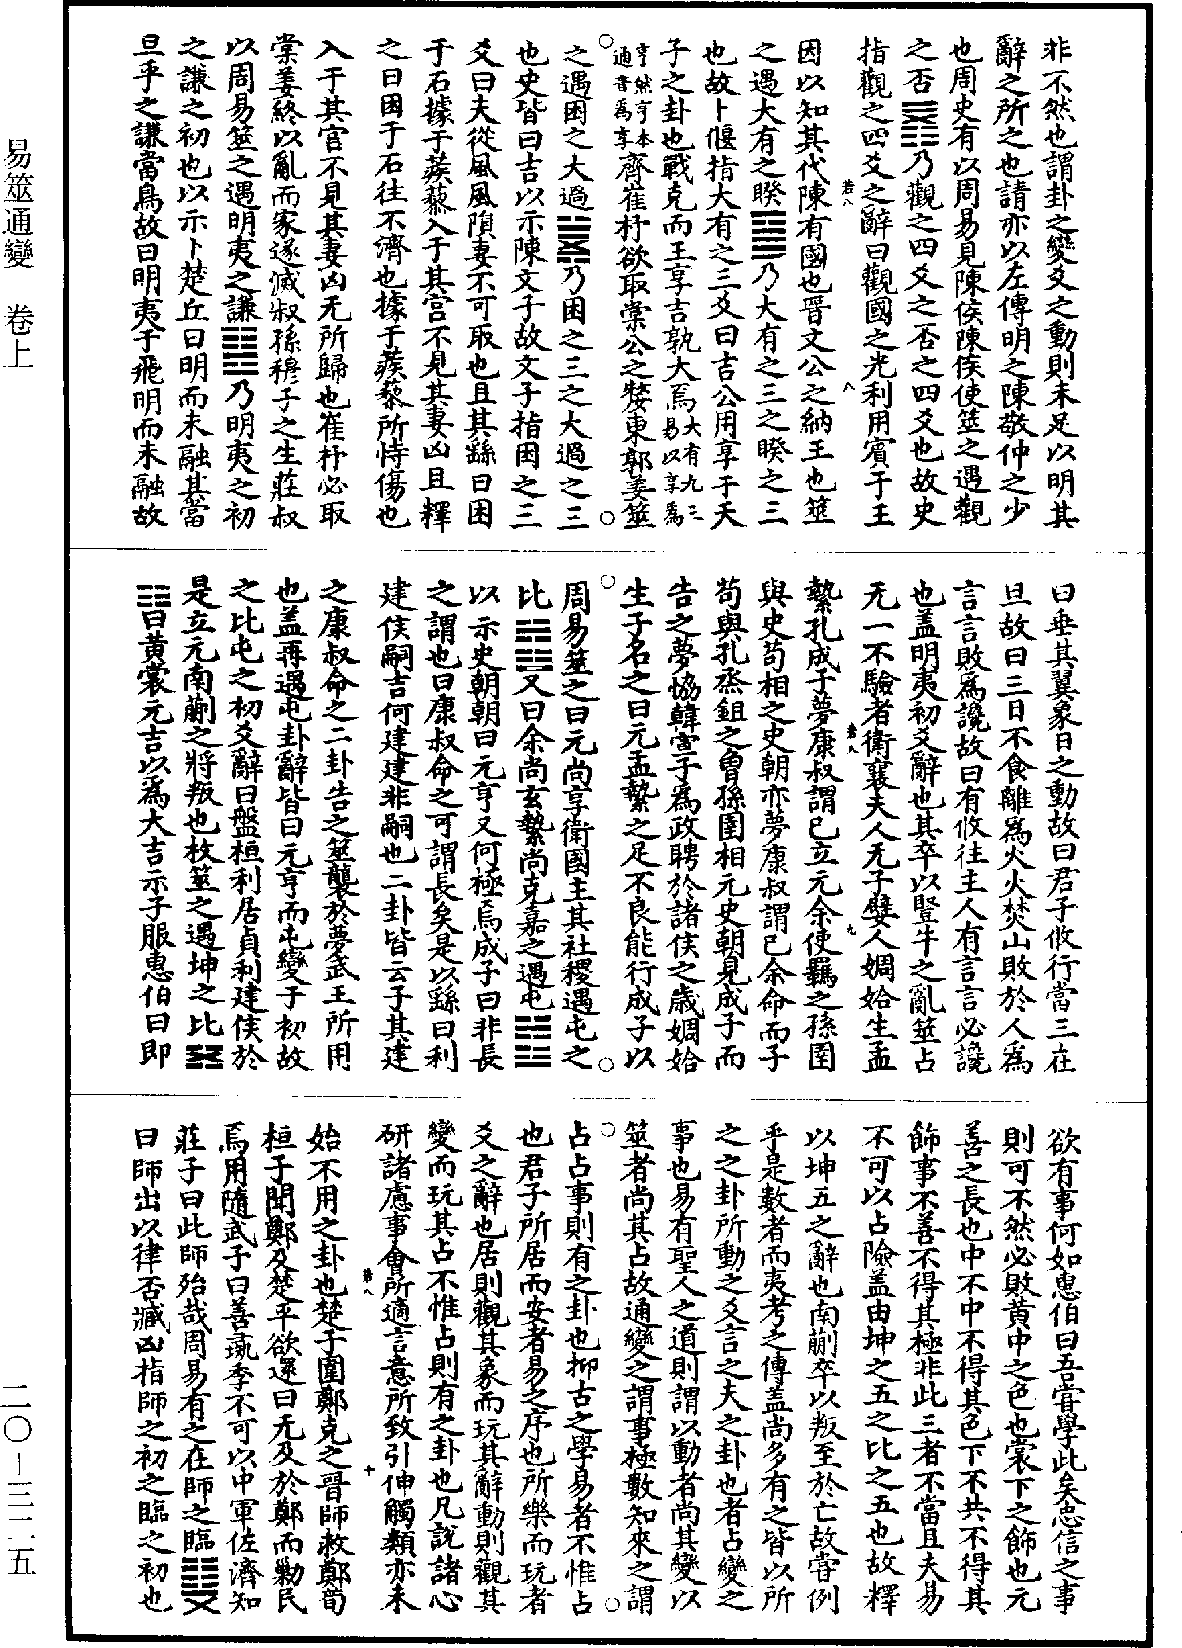 非不然也謂卦之變爻之動則未足以明其
辭之所之也請亦以左傳明之陳敬仲之少
也周史有以周易見陳侯陳侯使筮之遇觀
之否乃觀之四爻之否之四爻也故史
指觀之四爻之辭曰觀國之光利用賓于王
因以知其代陳有國也晉文公之納王也筮
之遇大有之睽乃大有之三之睽之三
也故卜偃指大有之三爻曰吉公用享于天
子之卦也戰克而王享吉孰大焉大有九三
易以享為
亨然亨本
通書為享齊崔杼欲取棠公之㛮東郭姜筮
之遇困之大過乃困之三之大過之三
也史皆曰吉以示陳文子故文子指困之三
爻曰夫從風風隕妻不可取也且其繇曰困
于石據于蒺藜入于其宮不見其妻凶且釋
之曰困于石往不濟也據于蒺藜所恃傷也
入于其宮不見其妻凶无所歸也崔杼必取
棠姜終以亂而家遂滅叔孫穆子之生莊叔
以周易筮之遇明夷之謙乃明夷之初
之謙之初也以示卜楚丘曰明而未融其當
旦乎之謙當鳥故曰明夷于飛明而未融故
曰垂其翼象日之動故曰君子攸行當三在
旦故曰三日不食離為火火焚山敗於人為
言言敗為讒故曰有攸往主人有言言必讒
也盖明夷初爻辭也其卒以豎牛之亂筮占
无一不驗者衛襄夫人无子嬖人婤姶生孟
縶孔成子夢康叔謂己立元余使羈之孫圉
與史苟相之史朝亦夢康叔謂己余命而子
苟與孔烝鉏之曾孫圉相元史朝見成子而
告之夢協韓宣子為政聘於諸侯之歲婤姶
生子名之曰元孟縶之足不良能行成子以
周易筮之曰元尚享衛國主其社稷遇屯之
比又曰余尚立縶尚克嘉之遇屯
以示史朝朝曰元亨又何極焉成子曰非長
之謂也曰康叔命之可謂長矣是以繇曰利
建侯嗣吉何建建非嗣也二卦皆云子其建
之康叔命之二卦告之筮襲於夢武王所用
也盖再遇屯卦辭皆曰元亨而屯變于初故
之比屯之初爻辭曰盤桓利居貞利建侯於
是立元南蒯之將叛也枚筮之遇坤之比
曰黃裳元吉以為大吉示子服惠伯曰即
欲有事何如惠伯曰吾嘗學此矣忠信之事
則可不然必敗黃中之色也裳下之飾也元
善之長也中不中不得其色下不共不得其
飾事不善不得其極非此三者不當且夫易
不可以占險盖由坤之五之比之五也故釋
以坤五之辭也南蒯卒以叛至於亡故嘗例
乎是數者而夷考之傳盖尚多有之皆以所
之之卦所動之爻言之夫之卦也者占變之
事也易有聖人之道則謂以動者尚其變以
筮者尚其占故通變之謂事極數知來之謂
占占事則有之卦也抑古之學易者不惟占
也君子所居而安者易之序也所樂而玩者
爻之辭也居則觀其象而玩其辭動則觀其
變而玩其占不惟占則有之卦也凡說諸心
研諸慮事會所適言意所致引伸觸類亦未
始不用之卦也楚子圍鄭克之晉師救鄭荀
桓子聞鄭及楚平欲還曰无及於鄭而勦民
焉用隨武子曰善彘季不可以中軍佐濟知
莊子曰此師殆哉周易有之在師之臨
曰師出以律否臧凶指師之初之臨之初也
易筮通變　卷上
二〇－三二五